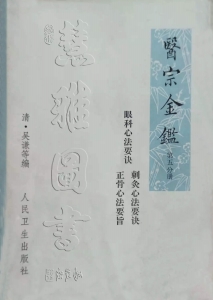 醫宗金鑑
第五分册
眼科心法要诀
刺灸心法要诀
正骨心法要旨
清·吴谦等编
人民卫生出版社